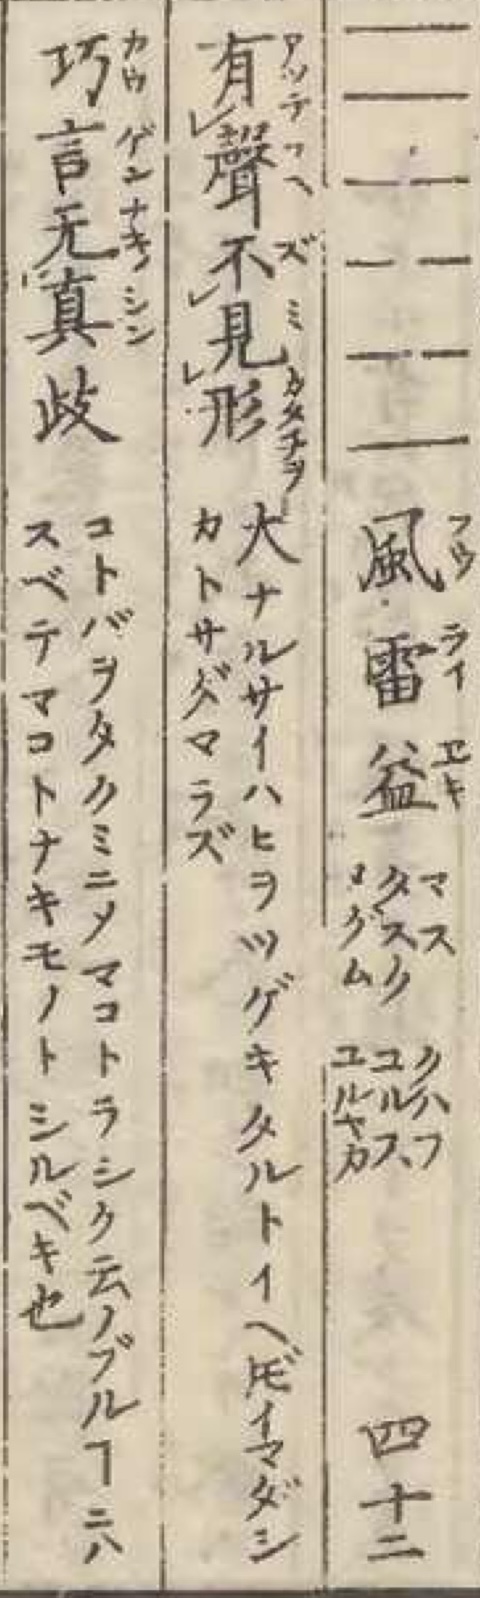 風雷益 マス タスク メグム クハフ ユルス ユルヤカ 四十二
フウ ライ ヱキ
有聲不見形
アツテコヘ ズミ カタチヲ
大ナルサイハヒヲツゲキタルトイヘ𪜈イマダシ
カトサダマラズ
巧言无真歧
カウゲンナキノシン
コトバヲタクミニメマコトラシク云ノブルヿニハ
スベテマコトナキモノトシルベキ也